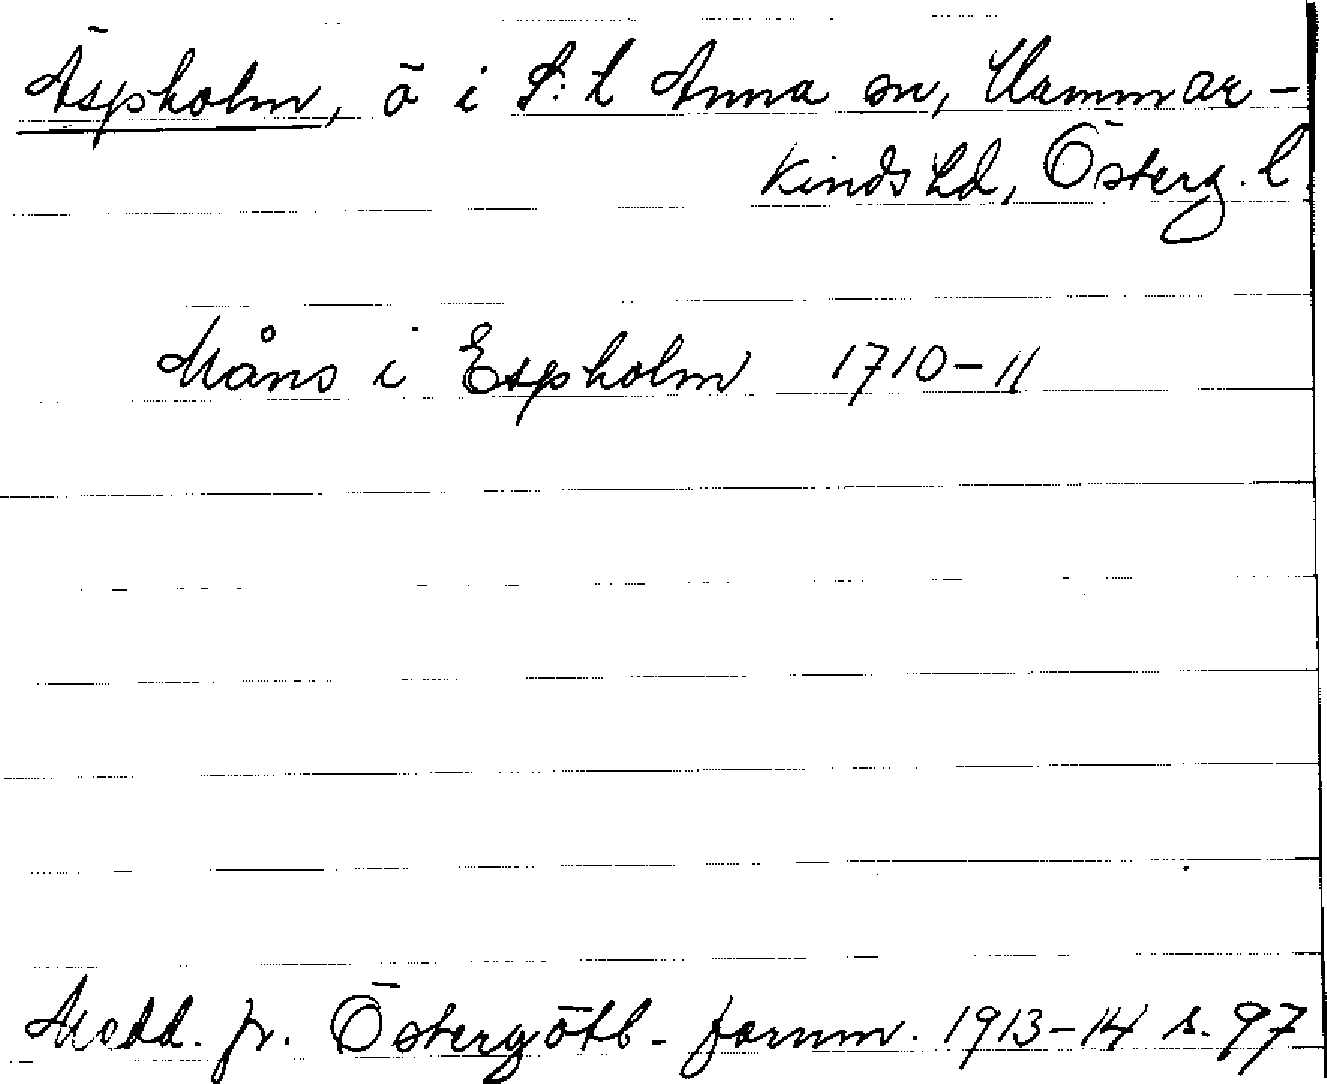 Äspholm, ö i S:t Anna sn, Hammar-
kinds hd, Österg. l.
Måns i Espholm 1710-11
Medd. fr. Östergötl. fornm. 1913-14 s. 97